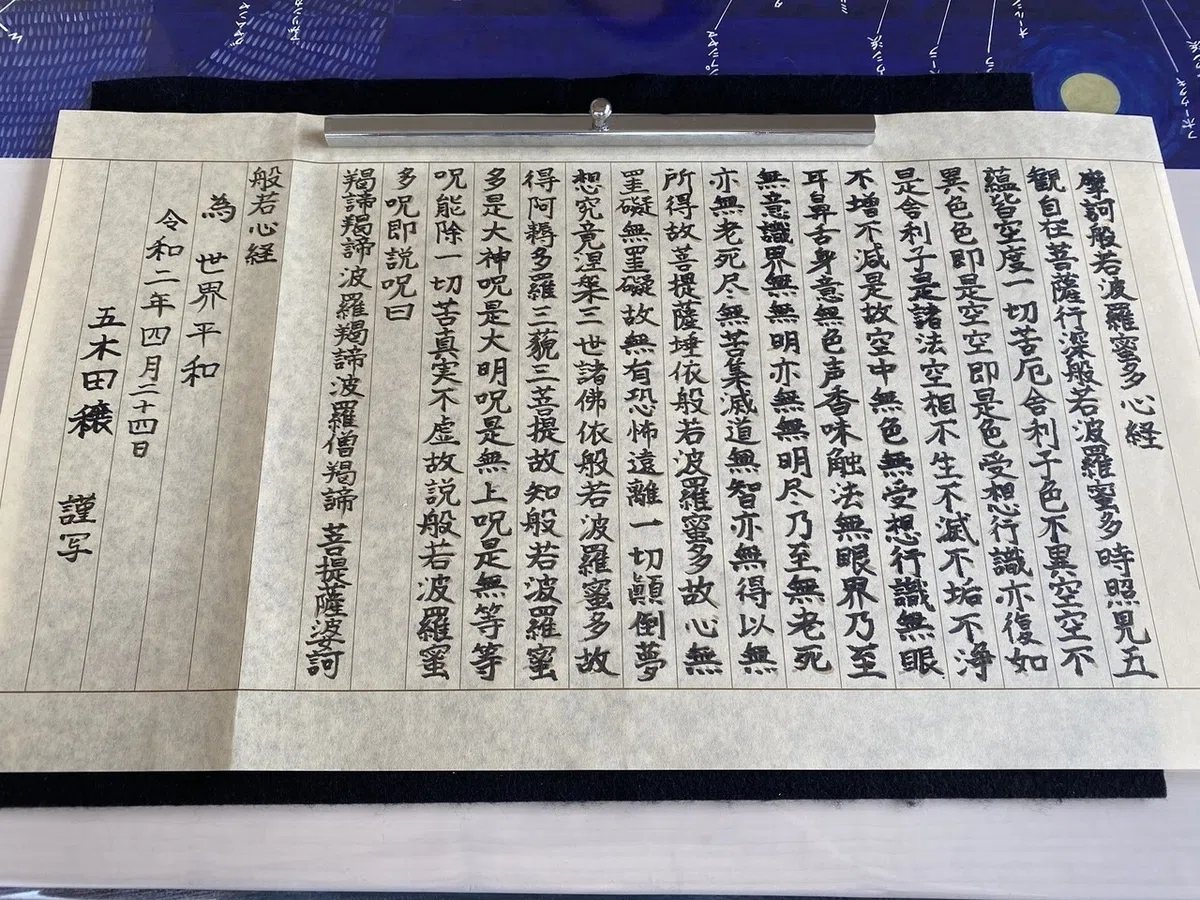 摩訶般若波羅蜜多心経
観自在菩薩行深般若波羅蜜多時照見五
蘊皆空度一切苦厄舎利子色不異空空不
異色色即是空空即是色受想行識亦復如
是舎利子是諸法空相不生不滅不垢不浄
不増不減是故空中無色無受想行識無眼
耳鼻舌身意無色声香味触法無眼界乃至
無意識界無無明亦無無明尽乃至無老死
亦無老死尽無苦集滅道無智亦無得以無
所得故菩提薩埵依般若波羅蜜多故心無
罣礙無罣礙故無有恐怖遠離一切顛倒夢
想究竟涅槃三世諸佛依般若波羅蜜多故
得阿耨多羅三藐三菩提故知般若波羅蜜
多是大神呪是大明呪是無上呪是無等等
呪能除一切苦真実不虚故説般若波羅蜜
多呪即説呪曰
羯諦羯諦波羅羯諦波羅僧羯諦 菩提薩婆訶
般若心経
為 世界平和
令和二年四月二十四日
五木田穣 謹写